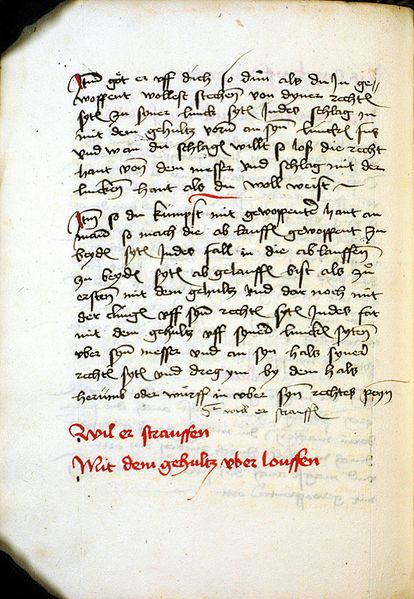 Item got er vff dich so dum als du In ge¬
woppent wollest stechen von dyner rechtn
sytn zu syner linck sytn Indes schlag in
mit dem gehultz vorn an syn linckn fus
vnd wan du schlagn wilt so loß die recht
hant von dem messer vnd schlag mit der
lincken hant als du woll weist
Item so du kumpst mit gewoppenter hant an
man so mach die ablauffn gewoppent zu
beydn sytn Indes fall in die ablauffen
zu beydn sytn ab gelauffn bist als zu
ersten mit dem gehultz vnd dar noch mit
der clingn vff syn rechtn sytn Indes far
mit dem gehultz vff syner linckn syten
vber syn messer vnd an syn hals syner
rechtn sytn vnd dreg ym by dem hals
herumb oder wurff in vber syn rechtes peyn
wil er strauffn
Wil er strauffen
Mit dem gehultz vber louffen